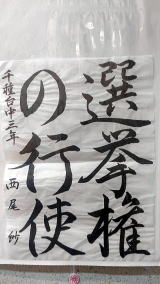 選挙権
の行使
千種台中三年
西尾紗